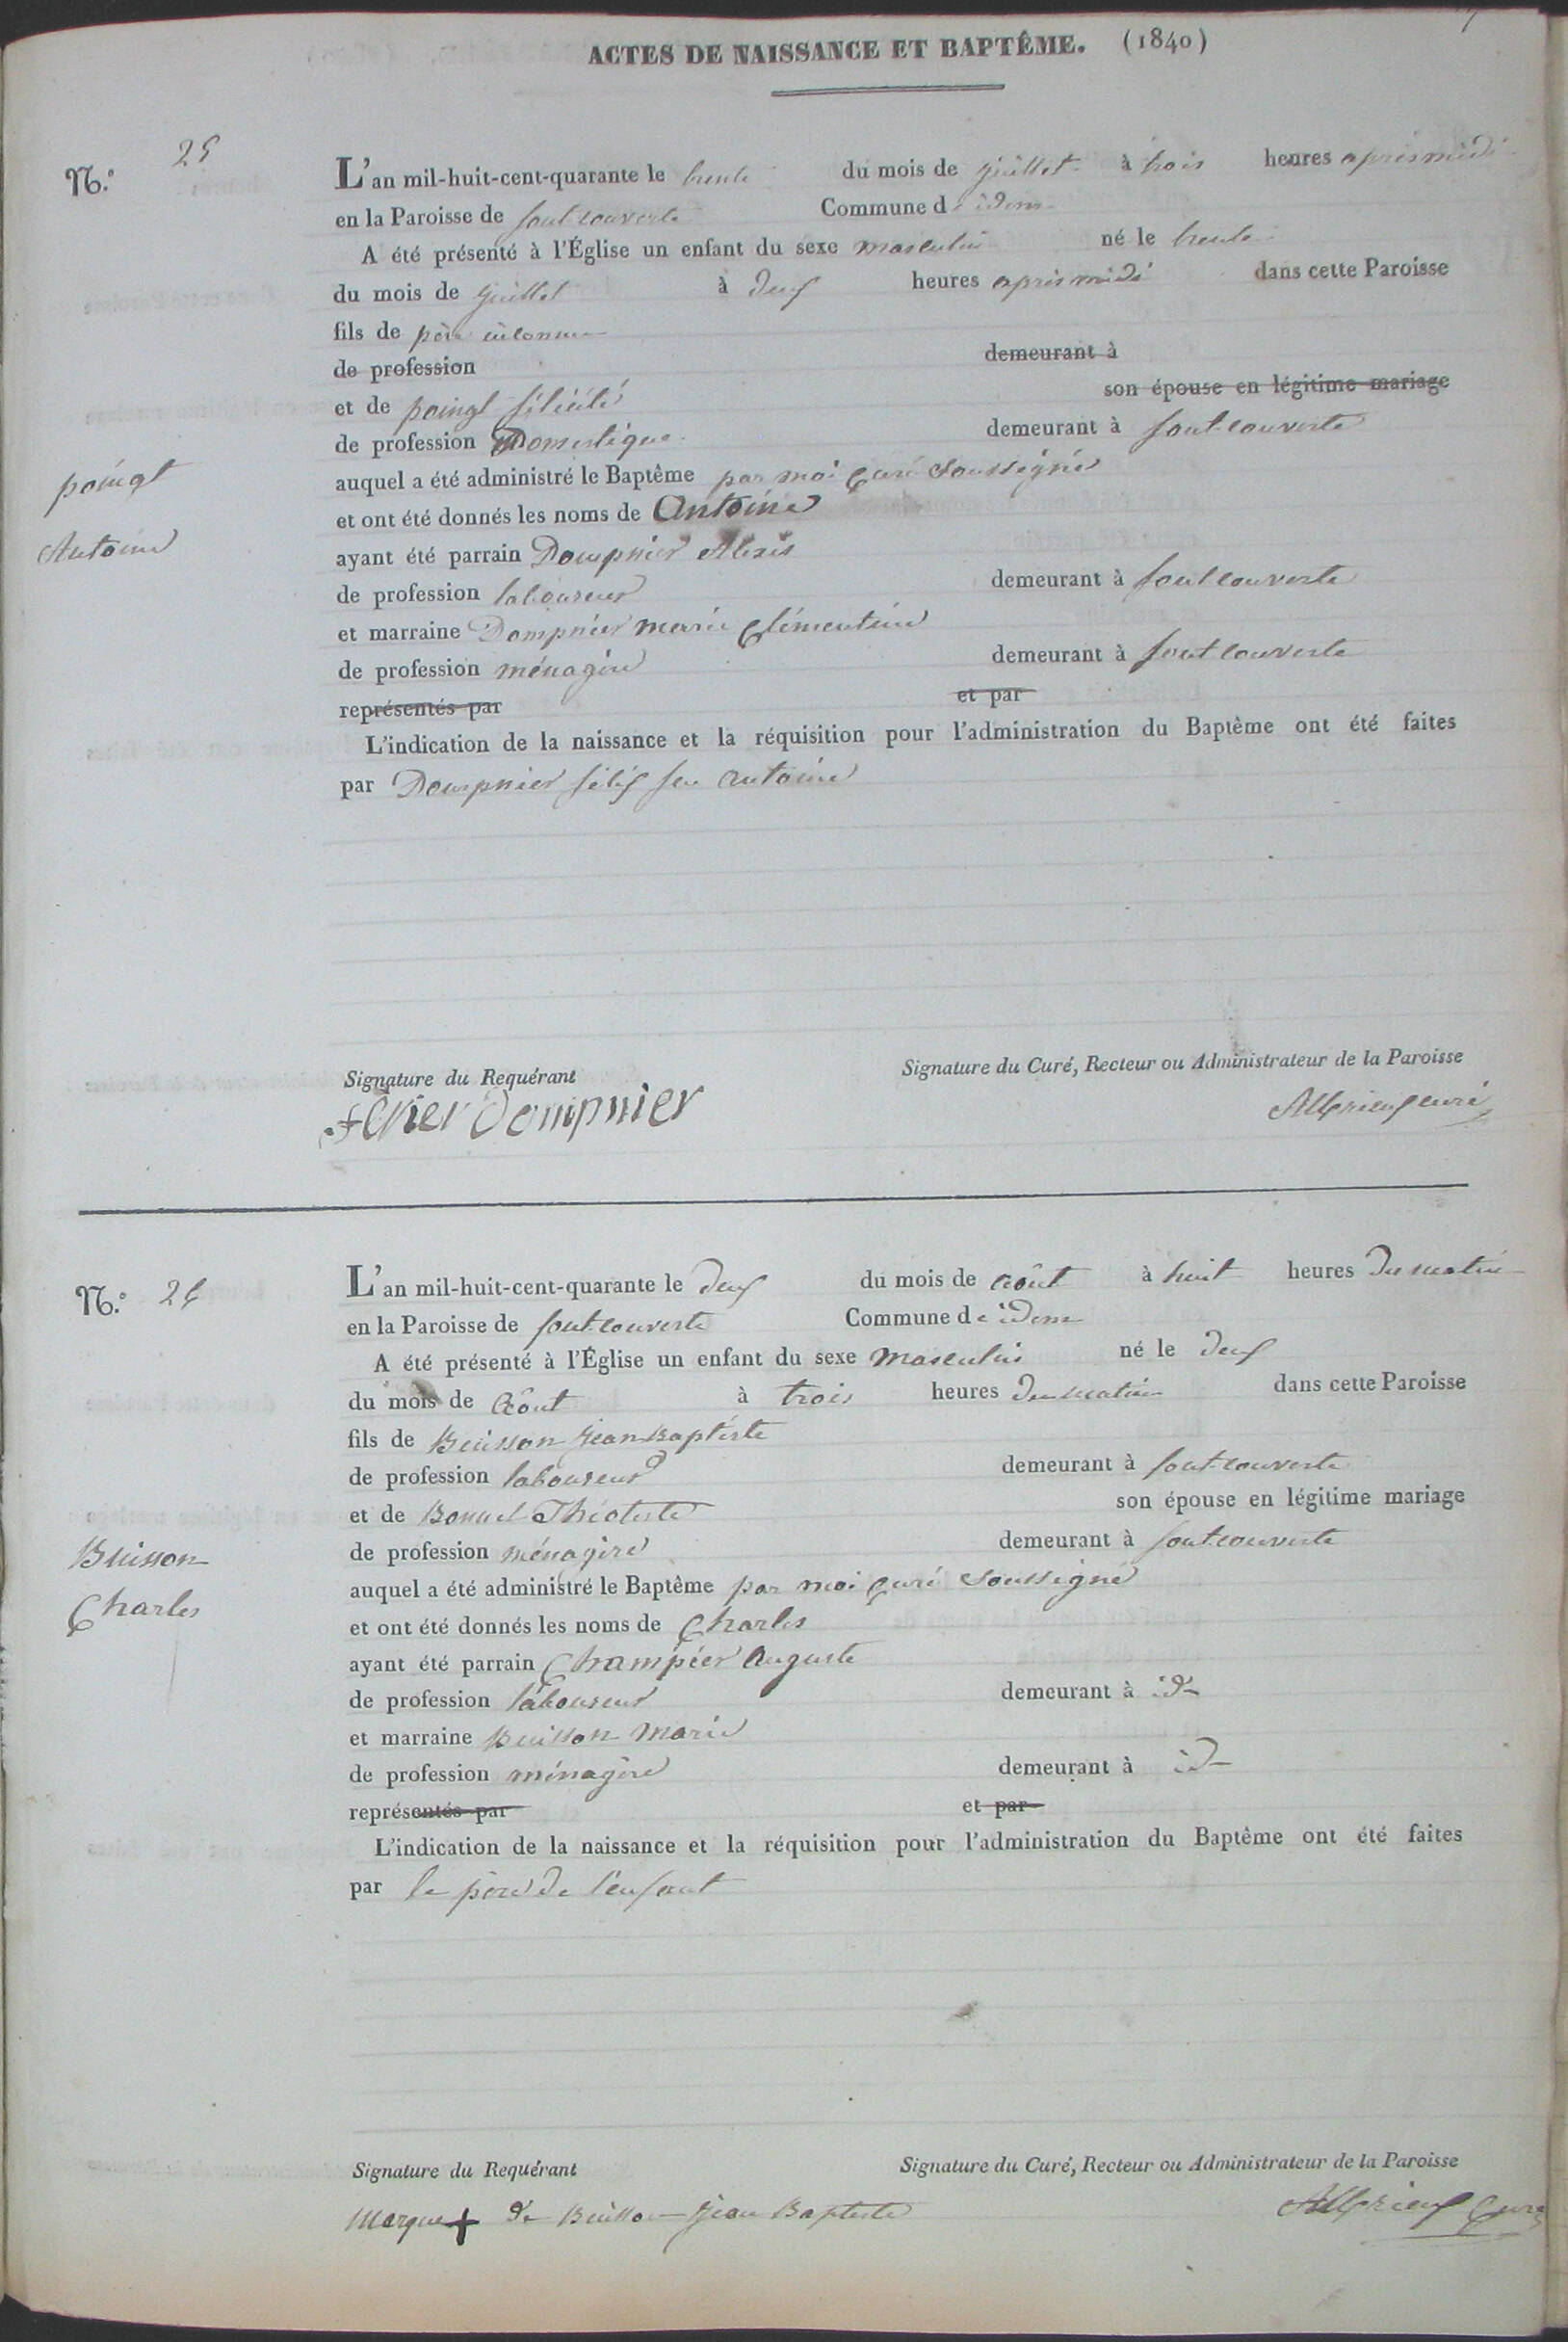 ACTES DE NAISSANCE ET BAPTÊME. (1840)
N.º 25
L'an mil-huit-cent-quarante le trente du mois de juillet à trois heures après midi
en la Paroisse de fontcouverte Commune de idem
A été présenté à l'Église un enfant du sexe masculin né le trente
du mois de juillet à deux heures après midi dans cette Paroisse
fils de père inconnu
de profession demeurant à
son épouse en légitime mariage
et de poingt félicité
de profession Domestique demeurant à fontcouverte
auquel a été administré le Baptême par moi Curé Soussigné
poingt
Antoine
et ont été donnés les noms de Antoine
ayant été parrain Dompnier Alexis
de profession laboureur demeurant à fontcouverte
et marraine Dompnier marie Clémentine
de profession ménagère demeurant à fontcouverte
représentés par et par
L'indication de la naissance et la réquisition pour l'administration du Baptême ont été faites
par Dompnier félix feu antoine
Signature du Requérant Signature du Curé, Recteur ou Administrateur de la Paroisse
Dompnier curé
N.º 26
L'an mil-huit-cent-quarante le deux du mois de août à huit heures du matin
en la Paroisse de fontcouverte Commune de idem
A été présenté à l'Église un enfant du sexe masculin né le deux
du mois de août à trois heures du matin dans cette Paroisse
fils de Buisson jean Baptiste
de profession laboureur demeurant à fontcouverte
et de Bonnel Théotiste son épouse en légitime mariage
de profession ménagère demeurant à fontcouverte
Buisson
Charles
auquel a été administré le Baptême par moi Curé Soussigné
et ont été donnés les noms de Charles
ayant été parrain Champier Auguste
de profession laboureur demeurant à id
et marraine Buisson Marie
de profession ménagère demeurant à id
représentés par et par
L'indication de la naissance et la réquisition pour l'administration du Baptême ont été faites
par le père de l'enfant
Signature du Requérant Signature du Curé, Recteur ou Administrateur de la Paroisse
Marque + de Buisson jean Baptiste Curé